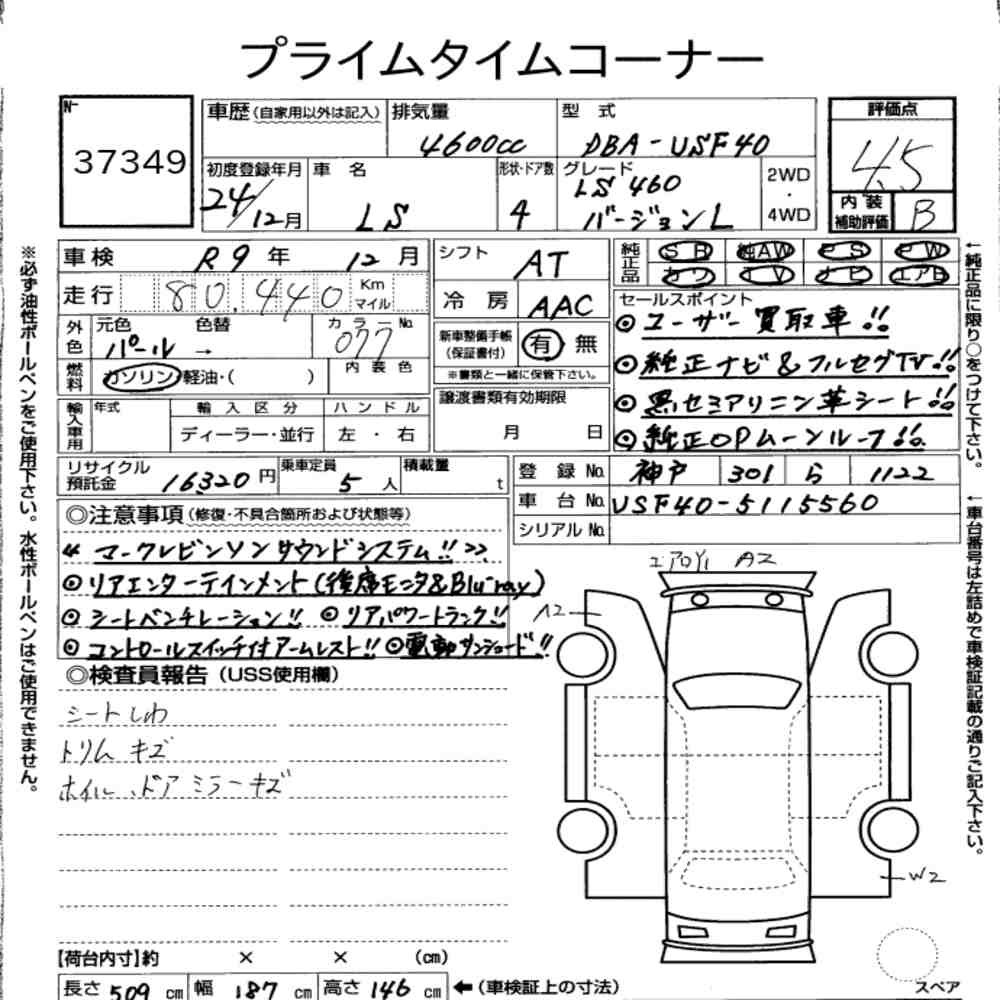 プライムタイムコーナー
№
37349
車歴(自家用以外は記入) 排気量 型式 評価点
4600cc DBA-USF40 4.5
初度登録年月 車名 形状・ドア数 グレード 2WD・4WD
24/12月 LS 4 LS 460 バージョンL
内装補助評価 B
車検 R9年 12月
走行 80,440 Km マイル
外色 元色 色替 カラーNo.
パール → 077
燃料 ガソリン 軽油・( ) 内装色
輸入車用 年式 輸入区分 ハンドル
ディーラー・並行 左・右
シフト AT
冷房 AAC
新車整備手帳(保証書付) 有 無
※書類と一緒に保管下さい。
譲渡書類有効期限
月 日
純正品 SR 純AW PS PW
カワ TV ナビ エアB
セールスポイント
◎ユーザー買取車!!
◎純正ナビ&フルセグTV!!
◎黒セミアリニン革シート!!
◎純正OPムーンルーフ!!
リサイクル預託金 16320円 乗車定員 5人 積載量 t
登録No. 神戸 301 ら 1122
車台No. USF40-5115560
シリアルNo.
◎注意事項(修復・不具合箇所および状態等)
《マークレビンソンサウンドシステム!!》
◎リアエンターテインメント(後席モニタ&Blu-ray)
◎シートベンチレーション!! ◎リアパワートランク!!
◎コントロールスイッチ付アームレスト!! ◎電動サンシェード!!
◎検査員報告(USS使用欄)
シートしわ
トリムキズ
ホイル、ドアミラーキズ
エアロY1 A2
A2
W2
【荷台内寸】約 × × (cm)
長さ 509 cm 幅 187 cm 高さ 146 cm ←(車検証上の寸法)
スペア
※必ず油性ボールペンをご使用下さい。水性ボールペンはご使用できません。
←純正品に限り○をつけて下さい。
←車台番号は左詰めで車検証記載の通りご記入下さい。